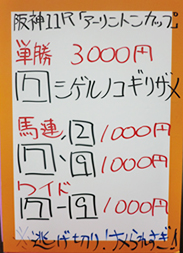 阪神11R「アーリントンカップ」
単勝 3000円
7 シゲルノコギリザメ
馬連 2 1000円
7 - 9 1000円
ワイド
7-9 1000円
※逃げ切り!ナメられすぎ!